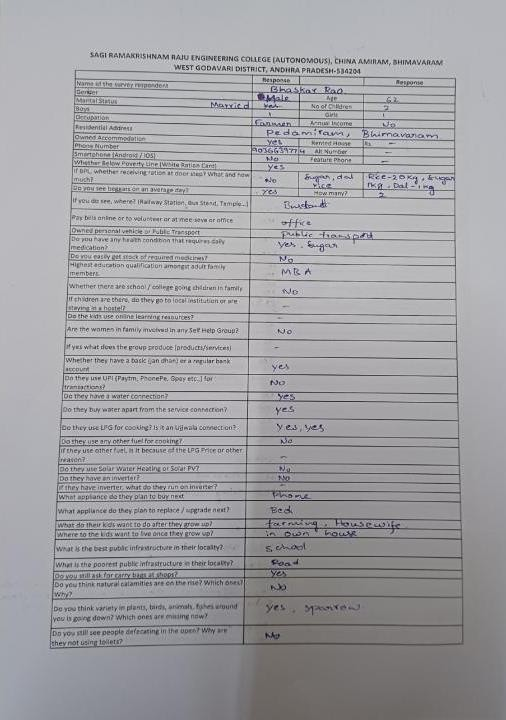 SAGI RAMAKRISHNAM RAJU ENGINEERING COLLEGE (AUTONOMOUS), CHINA AMIRAM, BHIMAVARAM
WEST GODAVARI DISTRICT, ANDHRA PRADESH-534204
Response Response
Name of the survey respondent Bhaskar Rao
Gender Male Age 62
Marital Status Married Yes No of Children 2
Boys 1 Girls 1
Occupation Farmer Annual Income No
Residential Address Pedamiram, Bhimavaram
Owned Accommodation Yes Rented House Rs. -
Phone Number Alt Number -
Smartphone (Android / iOS) No Feature Phone -
Whether Below Poverty Line (White Ration Card) Yes
If BPL, whether receiving ration at door step? What and how much? No Sugar, dal rice Rice-20kg, Sugar 1kg, Dal-1kg
Do you see beggars on an average day? Yes How many? 2
If you do, see where? (Railway Station, Bus Stand, Temple...)
Pay bills online or to volunteer or at mee-seva or office office
Owned personal vehicle or Public Transport Public transport
Do you have any health condition that requires daily
medication? Yes, Sugar
Do you easily get stock of required medicines? No
Highest education qualification amongst adult family
members. MBA
Whether there are school / college going children in family No
If children are there, do they go to local institution or are
staying in a hostel? -
Do the kids use online learning resources? -
Are the women in family involved in any Self Help Group? No
If yes what does the group produce (products/services) -
Whether they have a basic (jan dhan) or a regular bank
account yes
Do they use UPI (Paytm, PhonePe, Gpay etc..) for
transactions? No
Do they have a water connection? yes
Do they buy water apart from the service connection? yes
Do they use LPG for cooking? Is it an Ujwala connection? yes, yes
Do they use any other fuel for cooking? No
If they use other fuel, is it because of the LPG Price or other
reason? -
Do they use Solar Water Heating or Solar PV? No
Do they have an inverter? No
If they have inverter, what do they run on inverter? -
What appliance do they plan to buy next Phone
What appliance do they plan to replace / upgrade next? Bed
What do their kids want to do after they grow up? farming, Housewife
Where to the kids want to live once they grow up? in own house
What is the best public infrastructure in their locality? School
What is the poorest public infrastructure in their locality? Road
Do you still ask for carry bags at shops? Yes
Do you think natural calamities are on the rise? Which ones?
Why? No
Do you think variety in plants, birds, animals, fishes around
you is going down? Which ones are missing now? Yes, Sparrow
Do you still see people defecating in the open? Why are
they not using toilets? No